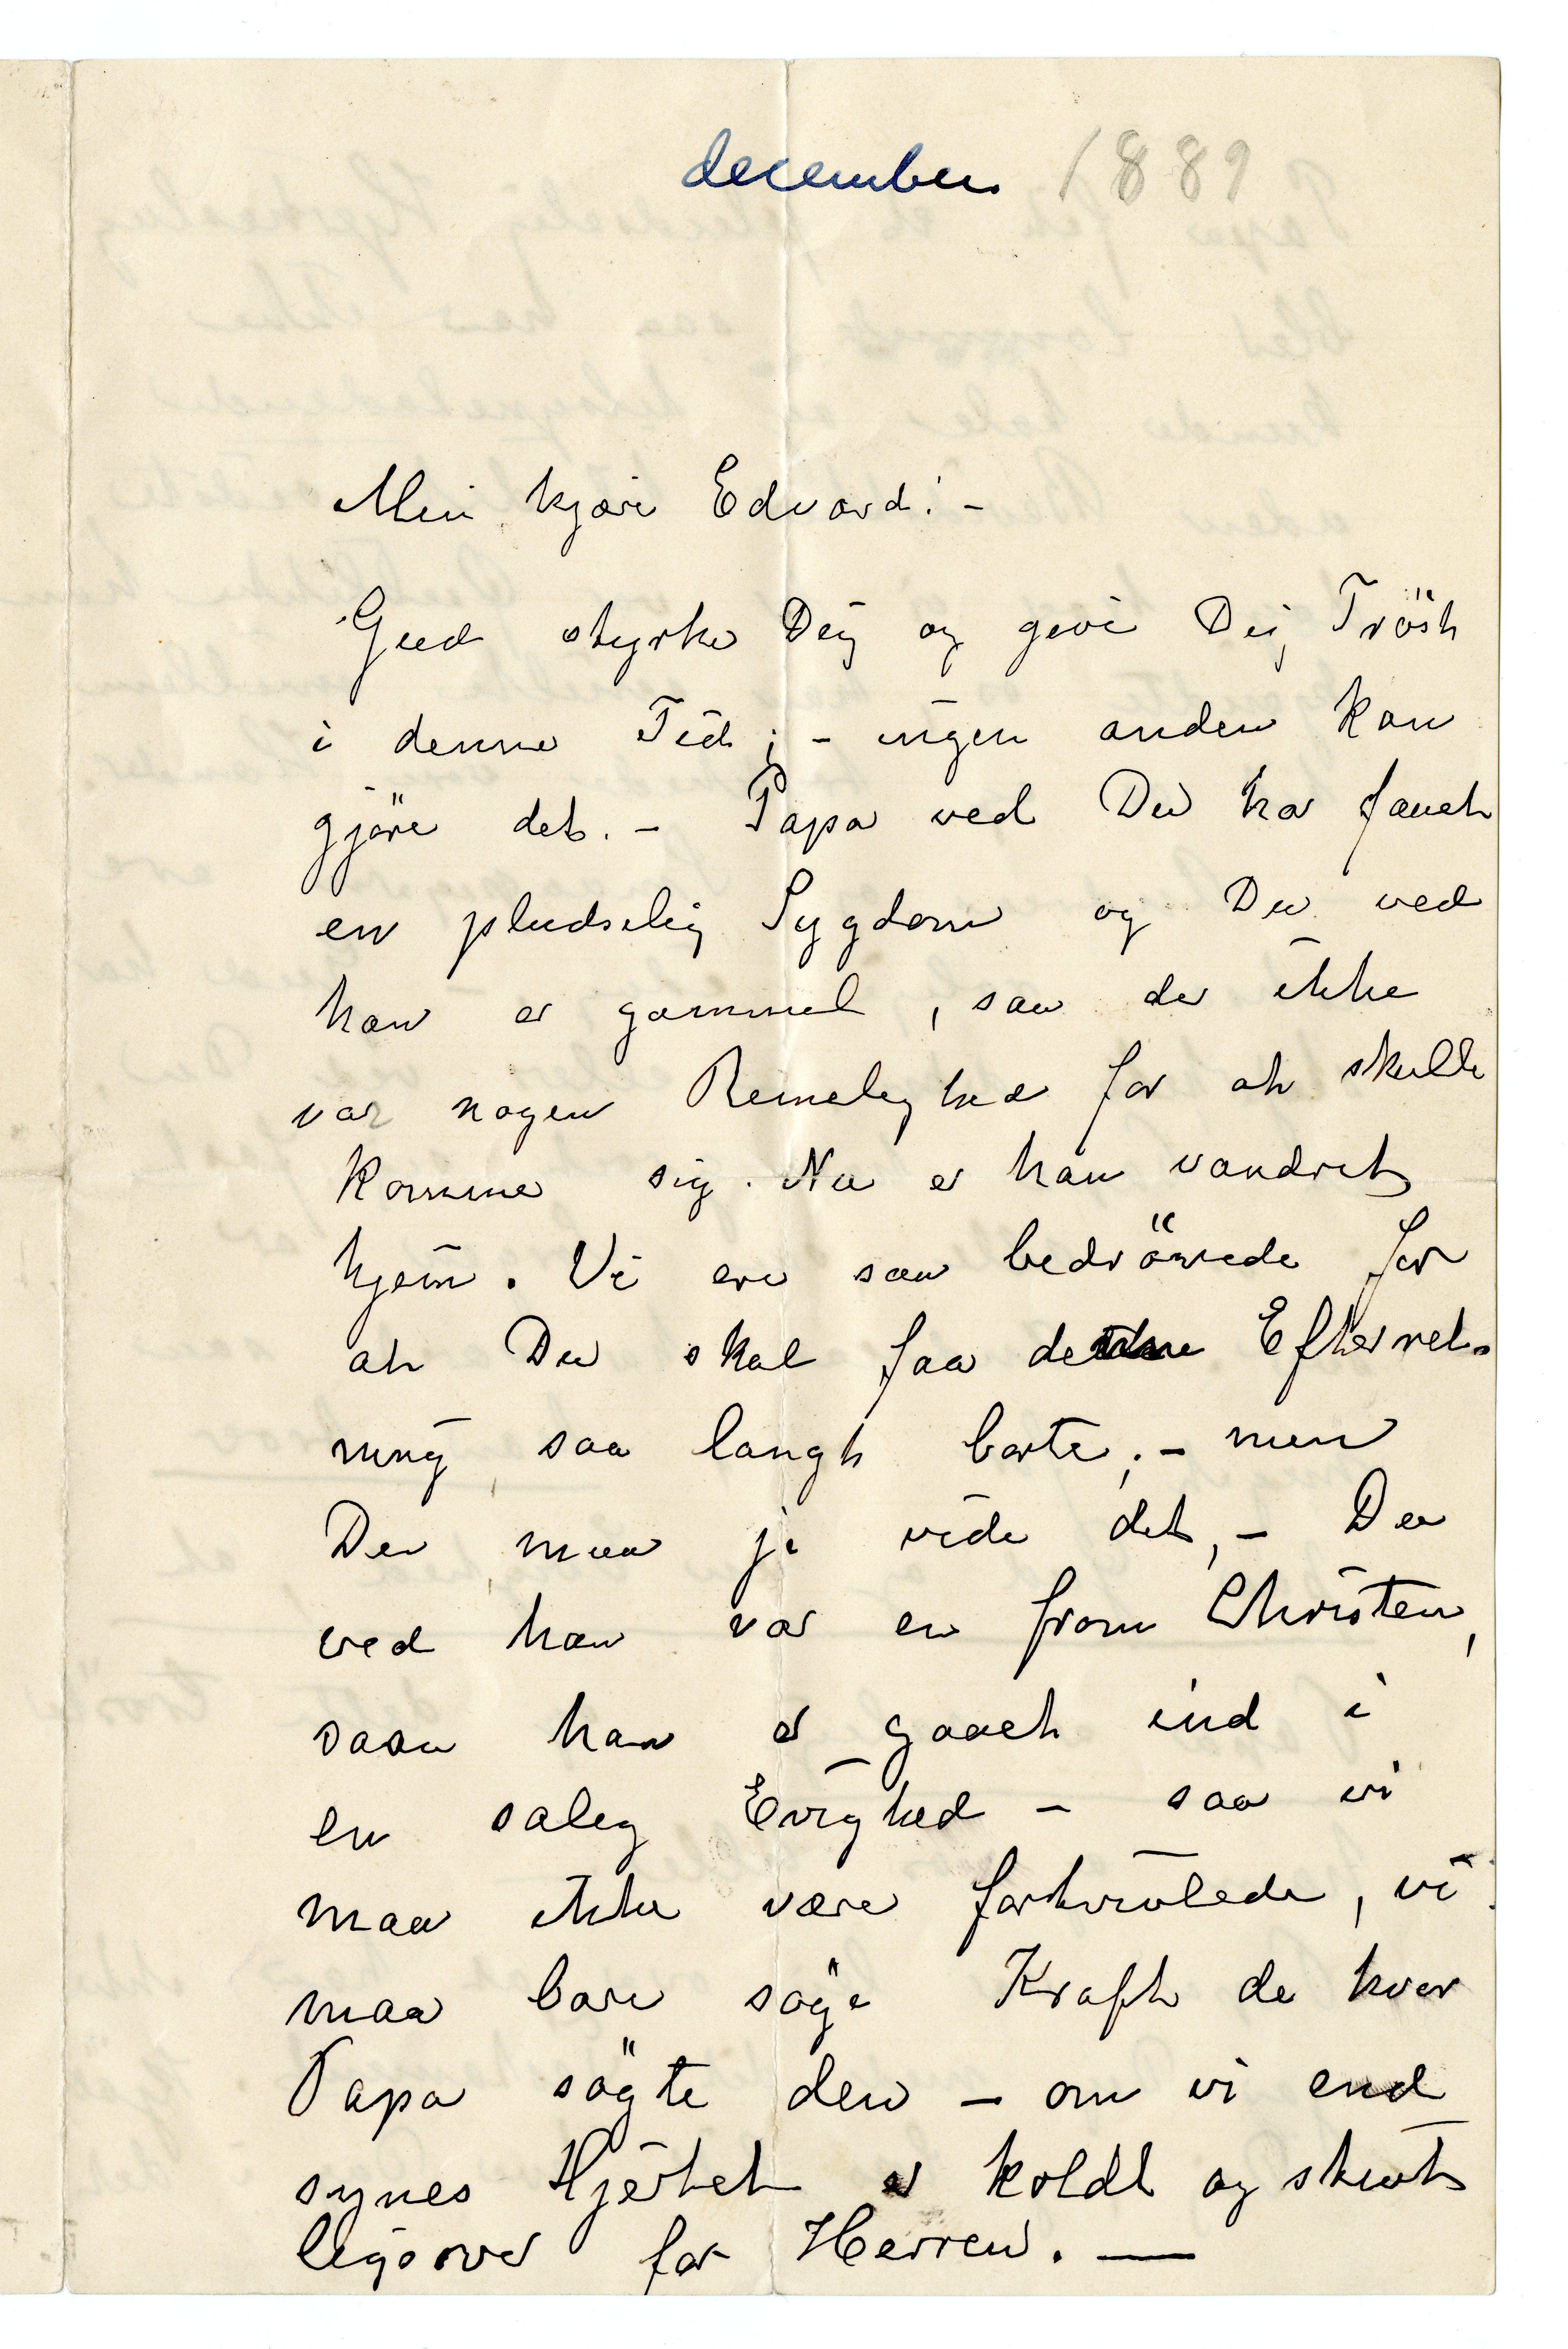 december 1889
Min kjære Edvard! -
Gud styrke Dig og give Dig Tröst
i denne Tid; - ingen anden kan
gjöre det. - Papa ved Du har faaet
en pludselig Sygdom og Du ved
han er gammel, saa der ikke
var nogen Rimelighed for at skulle
komme sig. Nu er han vandret
hjem. Vi ere saa bedrövede for
at Du skal faa denne Efterret-
ning saa langt borte; - men
Du maa jo vide det, - Du
ved han var en from Christen,
saa han er gaaet ind i
en salig Evighed - saa vi
maa ikke være fortvivlede, vi
maa bare söge Kraft der hvor
Papa sögte den - om vi end
synes Hjertet er koldt og stivt
ligeover for Herren. —